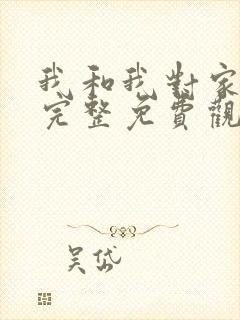 我和我對家
完整免費觀
吴岱